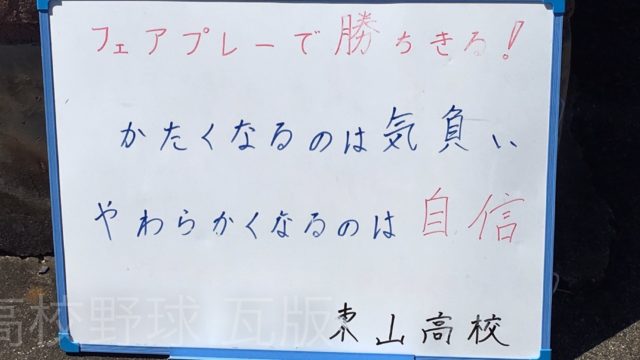 フェアプレーで勝ちきる!
かたくなるのは気負い
やわらかくなるのは自信
東山高校
高校野球 瓦版